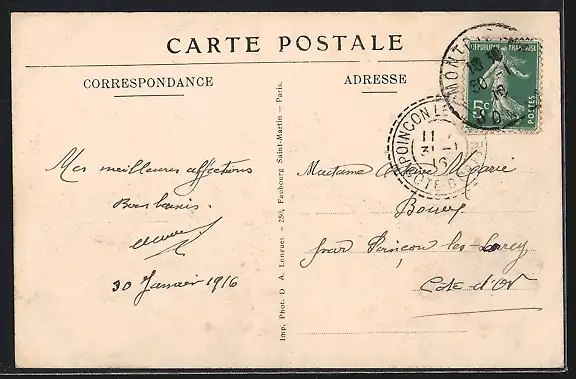 CARTE POSTALE
CORRESPONDANCE
ADRESSE
Mes meilleures affections
Bons baisers.
30 Janvier 1916
Imp. Phot. D. A. Longuet - 250, Faubourg Saint-Martin - Paris.
Madame Marie
Bouey
par Poinçon les-Larrey
Côte-d'Or
RÉPUBLIQUE FRANÇAISE
5c
POSTES
MONT
30
16
POINCON LE
11
31 - 1
16
COTE D